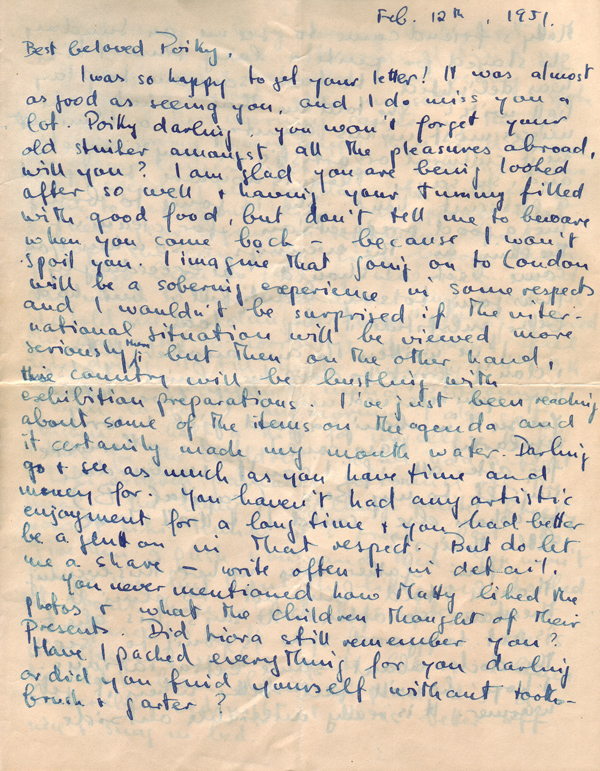 Feb. 12th, 1951.
Best beloved Poiky,
I was so happy to get your letter! It was almost
as good as seeing you, and I do miss you a
lot. Poiky darling, you won't forget your
old stinker amongst all the pleasures abroad,
will you? I am glad you are being looked
after so well & having your tummy filled
with good food, but don't tell me to beware
when you come back – because I won't
spoil you. I imagine that going on to London
will be a sobering experience in some respects
and I wouldn't be surprised if the inter-
national situation will be viewed more
seriously there; but then on the other hand,
the country will be bustling with
exhibition preparations. I've just been reading
about some of the items on the agenda and
it certainly made my mouth water. Darling
go & see as much as you have time and
money for. You haven't had any artistic
enjoyment for a long time & you had better
be a glutton in that respect. But do let
me a share – write often & in detail.
You never mentioned how Matty liked the
photos & what the children thought of their
Presents. Did still remember you?
Have I packed everything for you darling
or did you find yourself without tooth-
brush & garter?